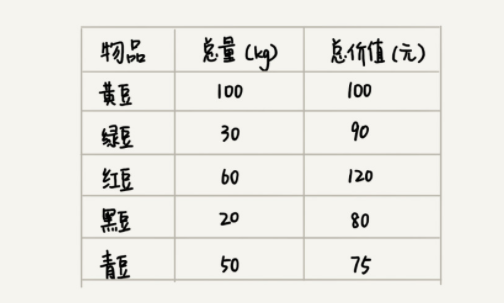 物品 总量(kg) 总价值(元)
黄豆 100 100
绿豆 30 90
红豆 60 120
黑豆 20 80
青豆 50 75